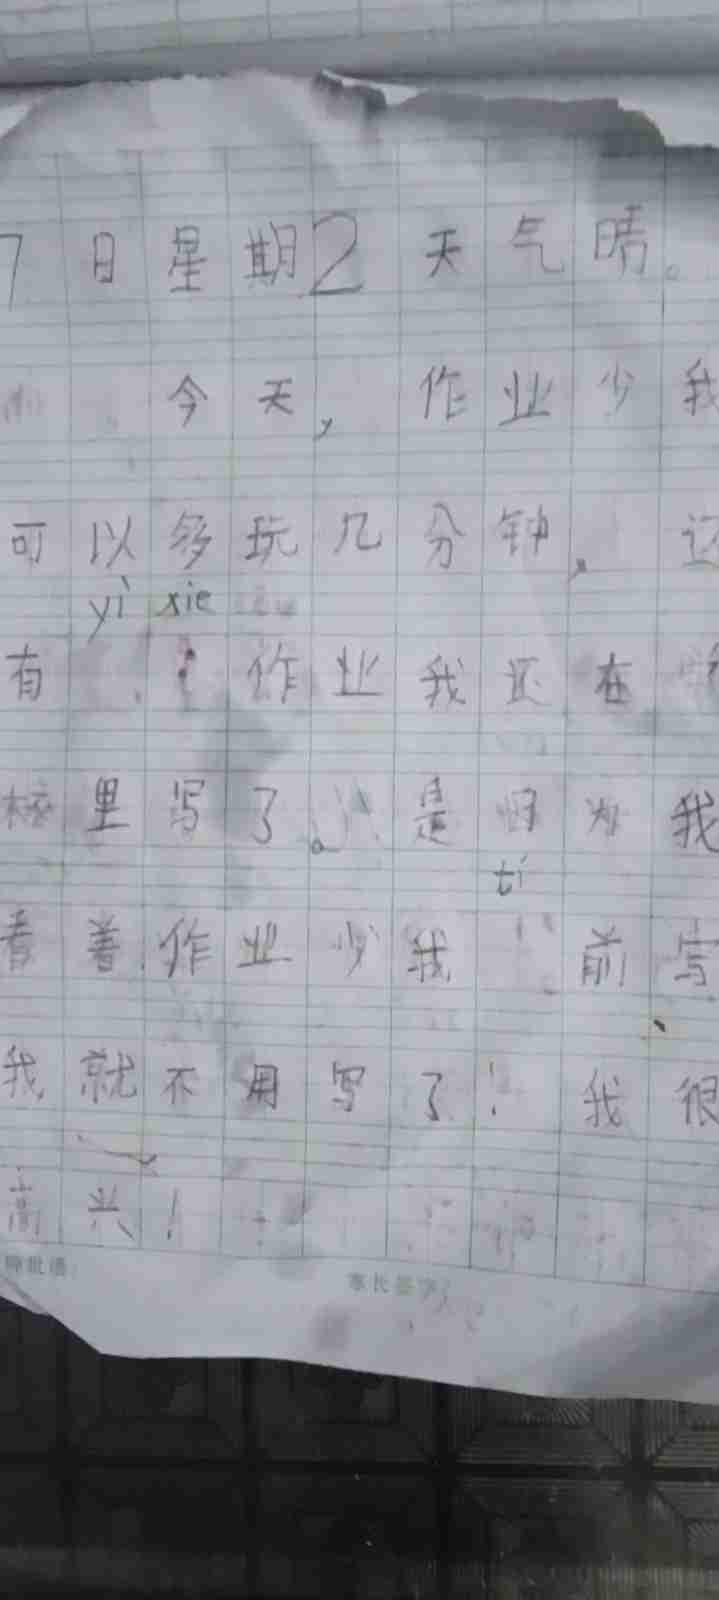 7日星期2天气晴。
今天,作业少我
可以多玩几分钟,还
yì xie
有作业我还在学
校里写了。是因为我
tí
看着作业少我前写、
我就不用写了!我很
高兴!
师批语:
家长签字